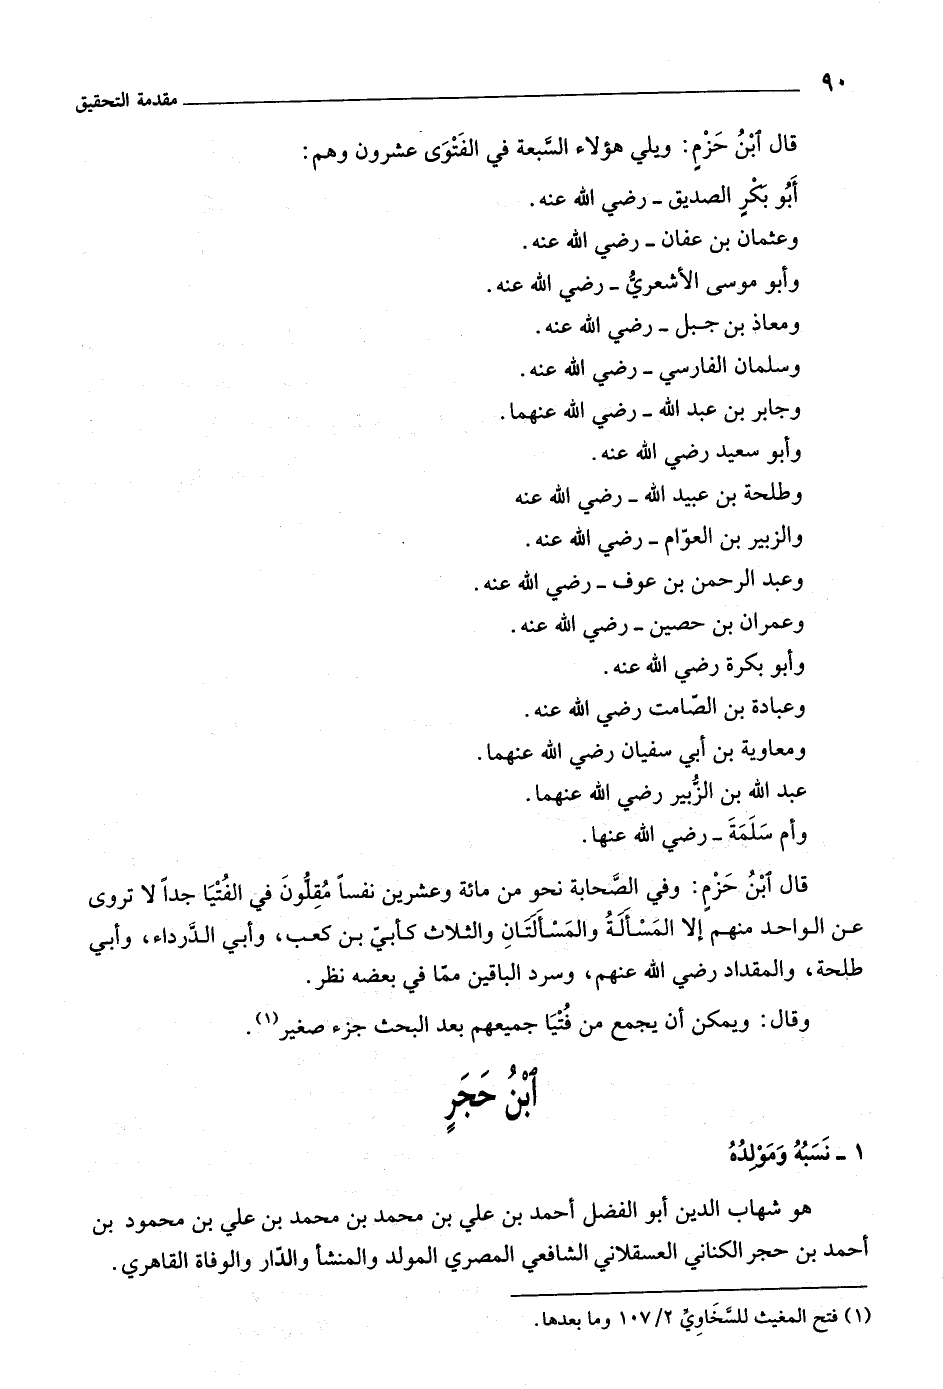 ٩٠
مقدمة التحقيق
قال ٱبْنُ حَزْمٍ: ويلي هؤلاء السَّبعة في الفَتْوَى عشرون وهم:
أَبُو بَكْرٍ الصديق ـ رضي الله عنه.
وعثمان بن عفان ـ رضي الله عنه.
وأبو موسى الأشعريُّ ـ رضي الله عنه.
ومعاذ بن جبل ـ رضي الله عنه.
وسلمان الفارسي ـ رضي الله عنه.
وجابر بن عبد الله ـ رضي الله عنهما.
وأبو سعيد رضي الله عنه.
وطلحة بن عبيد الله ـ رضي الله عنه
والزبير بن العوّام ـ رضي الله عنه.
وعبد الرحمن بن عوف ـ رضي الله عنه.
وعمران بن حصين ـ رضي الله عنه.
وأبو بكرة رضي الله عنه.
وعبادة بن الصّامت رضي الله عنه.
ومعاوية بن أبي سفيان رضي الله عنهما.
عبد الله بن الزُّبير رضي الله عنهما.
وأم سَلَمَةَ ـ رضي الله عنها.
قال ٱبْنُ حَزْمٍ: وفي الصَّحابة نحو من مائة وعشرين نفساً مُقِلُّونَ في الفُتْيَا جداً لا تروى
عن الواحد منهم إلا المَسْأَلَةُ والمَسْأَلَتَانِ والثلاث كأبيّ بن كعب، وأبي الدَّرداء، وأبي
طلحة، والمقداد رضي الله عنهم، وسرد الباقين ممّا في بعضه نظر.
وقال: ويمكن أن يجمع من فُتْيَا جميعهم بعد البحث جزء صغير(١).
ٱبْنُ حَجَرٍ
١ ـ نَسَبُهُ وَمَوْلِدُهُ
هو شهاب الدين أبو الفضل أحمد بن علي بن محمد بن محمد بن علي بن محمود بن
أحمد بن حجر الكناني العسقلاني الشافعي المصري المولد والمنشأ والدّار والوفاة القاهري.
(١) فتح المغيث للسَّخَاوِيِّ ١٠٧/٢ وما بعدها.